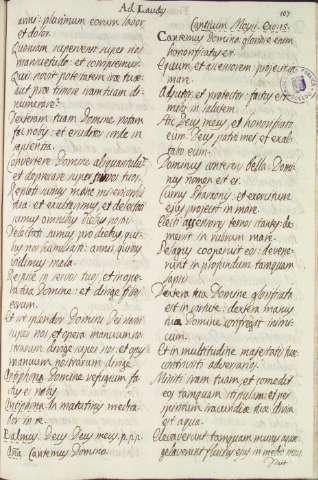 Ad Laudes
107
annis: plurimum eorum labor,
et dolor.
Quoniam supervenit super nos
mansuetudo: et corripiemur.
Quis novit potestatem irae tuae:
aut prae timore iram tuam di-
numerare?
Dexteram tuam Domine notam
fac nobis: et eruditos corde in
sapientia.
Convertere Domine aliquantulum?
et deprecare super servos tuos.
Repleti sumus mane misericordia
tua: et exaltavimus, et delectati
sumus omnibus diebus nostris.
Delectati sumus pro diebus qui-
bus nos humiliasti: annis quibus
vidimus mala.
Respice in servos tuos, et in ope-
ra tua Domine: et dirige filios
eorum.
Et sit splendor Domini Dei nostri
super nos, et opera manuum nos-
trarum dirige super nos: et opus
manuum nostrarum dirige.
Antiphona Domine refugium fac-
tus es nobis.
Antiphona In matutinis medita-
bor in te.
Psalmus. Deus Deus meus. p.p.p.
Aña. Cantemus Domino.
Canticum Moysi. Exo. 15.
Cantemus Domino: gloriose enim
honorificatus est.
Equum, et ascensorem projecit in
mare.
Adjutor, et protector: factus est
mihi in salutem.
Hic Deus meus, et honorificabo
eum: Deus patris mei, et exal-
tabo eum.
Dominus conterens bella: Domi-
nus nomen est ei.
Currus Pharaonis, et exercitum
ejus projecit in mare.
Electos ascensores ternos stantes: de-
mersit in rubrum mare.
Pelagus cooperuit eos: devene-
runt in profundum tamquam
lapis.
Dextera tua Domine glorificata
est in virtute: dextera manus
tua Domine confregit inimi-
cum.
Et in multitudine majestatis tuae
contrivisti adversarios.
Misisti iram tuam, et comedit
eos tamquam stipulam: et per
spiritum iracundiae tuae divisa
est aqua.
Gelaverunt tamquam murus aquae:
gelaverunt fluctus ejus in medio mari.
Dixit